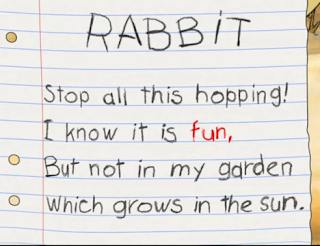 RABBiT
Stop all this hopping!
I know it is fun,
But not in my garden
Which grows in the sun.